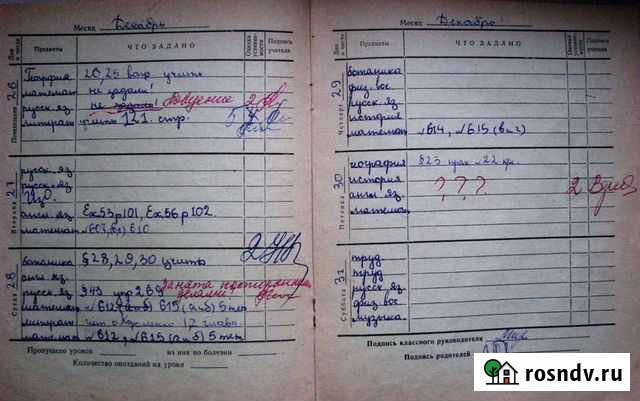 Месяц Декабрь
Дни и числа Предметы ЧТО ЗАДАНО Оценка успеваемости Подпись учителя
Понедельник 26
География 20, 25 вопр учить
математ не задали!
русск яз. не задано! 2
литерат учить 121 стр. 5
Вторник 27
русск. яз.
русск. яз.
ИЗО.
англ. яз. Ex53p101, Ex56p102.
математ
Среда 28
ботаника § 28, 29, 30 учить 2
англ яз.
русск яз. §43 упр 269 Занята посторонними делами!
математ №612 615(а и б) 5
литерат 12 глава
математ №612, №615 (а и б) 5
Пропущено уроков из них по болезни
Количество опозданий на уроки
Месяц Декабрь
Дни и числа Предметы ЧТО ЗАДАНО Оценка успеваемости Подпись учителя
Четверг 29
ботаника
физ. вос.
русск. яз.
история
математ №614, №615 (в и г)
Пятница 30
география §23
история ? ? ? 2
англ. яз.
математ
Суббота 31
труд
труд
русск. яз.
физ. вос.
музыка.
Подпись классного руководителя
Подпись родителей
rosndv.ru